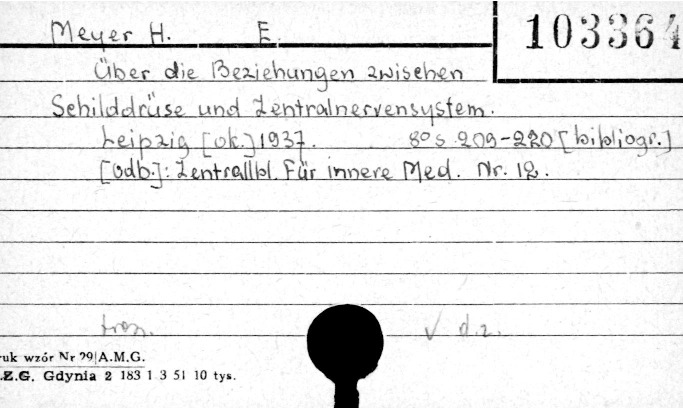 Meyer H. E.
103364
Über die Beziehungen zwischen
Schilddrüse und Zentralnervensystem.
Leipzig [ok.] 1937. 8° s. 209-220 [bibliogr.]
[Odb.]: Zentrallbl. Für innere Med. Nr. 12.
V d.z.
ruk wzór Nr 29 A.M.G.
.Z.G. Gdynia 2 183 1 3 51 10 tys.